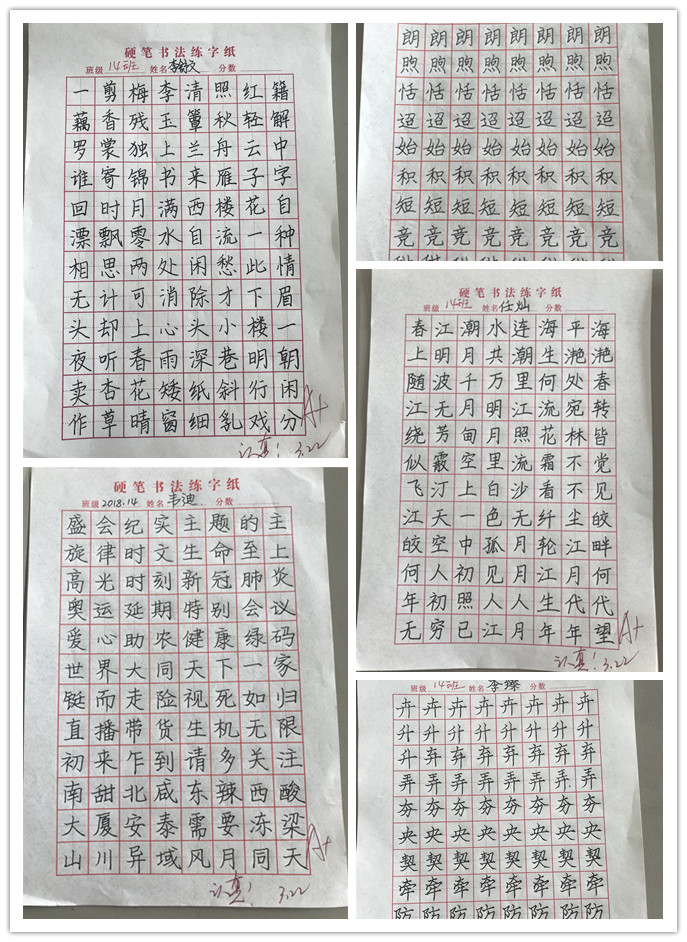 硬笔书法练字纸
班级 14班 姓名 分数
一剪梅李清照红藕
香残玉簟秋轻解
罗裳独上兰舟云中
谁寄锦书来雁子字
回时月满西楼花自
漂飘零水自流一种
相思两处闲愁此情
无计可消除才下眉
头却上心头小楼一
夜听春雨深巷明朝
卖杏花矮纸斜行闲
作草晴窗细乱戏分
A+
认真！3.22
朗朗朗朗朗朗朗朗
煦煦煦煦煦煦煦煦
恬恬恬恬恬恬恬恬
迢迢迢迢迢迢迢迢
始始始始始始始始
积积积积积积积积
短短短短短短短短
竞竞竞竞竞竞竞竞
硬笔书法练字纸
班级 14班 姓名 任灿 分数
春江潮水连海平海
上明月共潮生滟滟
随波千万里何处春
江无月明江流宛转
绕芳甸月照花林皆
似霰空里流霜不觉
飞汀上白沙看不见
江天一色无纤尘皎
皎空中孤月轮江畔
何人初见月江月何
年初照人人生代代
无穷已江月年年望
A+
认真！3.22
硬笔书法练字纸
班级 2018.14 姓名 韦迪 分数
盛会纪实主题的主
旋律时文生命至上
高光时刻新冠肺炎
奥运延期特别会议
爱心助农健康绿码
世界大同天下一家
铤而走险视死如归
直播带货生机无限
初来乍到请多关注
南甜北咸东辣西酸
大厦安泰需要冻梁
山川异域风月同天
A+
认真！3.22
班级 14班 姓名 李璨 分数
卉卉卉卉卉卉卉
升升升升升升升
弃弃弃弃弃弃弃
弄弄弄弄弄弄弄
夯夯夯夯夯夯夯
央央央央央央央
契契契契契契契
牵牵牵牵牵牵牵
防防防防防防防